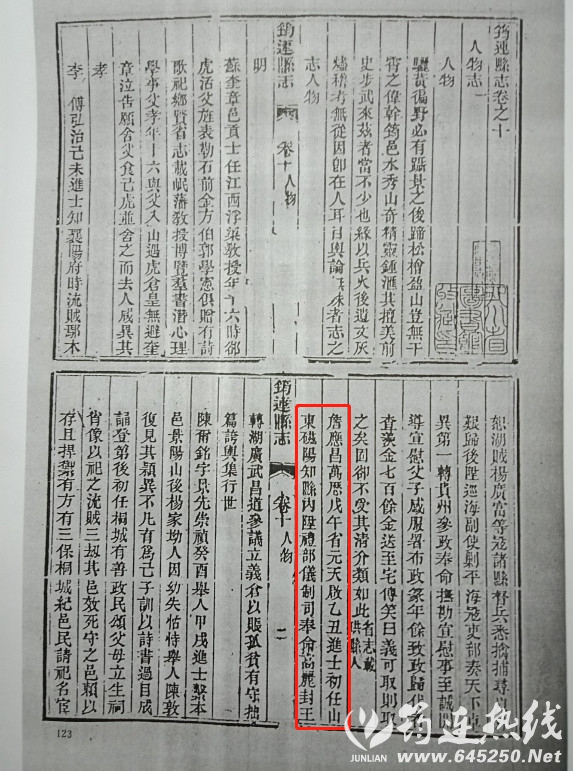 筠連縣志卷之十
人物志
人物
驪黃徧野必有躡景之後蹄松檜盈山豈無干
霄之偉幹筠邑水秀山奇精靈鍾滙其擅美前
史步武來茲者當不少也緣以兵火後遺文灰
燼稽考無從因卽在人耳目與論 者志之
志人物
筠連縣志 卷十 人物
明
蘇奎章邑貢士任江西浮梁教授年十六時
虎活父旌表勒石前金方伯郭學憲俱贈有詩
歌祀鄉賢省志載岷藩教授博覽羣書潛心理
學事父孝年十六與父入山遇虎倉皇無避奎
章泣告願舍父食己虎並舍之而去人咸異其
孝
李 傅弘治己未進士知襄陽府時流賊鄢本
恕湖賊楊廣富等寇諸縣督兵悉擒捕尋
艱歸後陞巡海副使剿平海寇吏部奏天下
異第一轉貴州參政奉命撫勘宣慰事至誠
導宣慰父子感服署布政篆年餘致政歸
查羨金七百餘金送至宅傅笑曰義可取則取
之矣固卻不受其清介類如此 省志載珙縣人
詹應昌萬曆戊午省元天啟乙丑進士初任山
東礠陽知縣內陞禮部儀制司奉命高麗封王
筠連縣志 卷十 人物 二
轉湖廣武昌道參議立義倉以賑孤貧有守拙
篇謗輿集行世
陳爾銘字景先崇禎癸酉舉人甲戌進士繫本
邑景陽山後楊家坳人因幼失怙恃舉人陳敦
復見其穎異不凡育為己子訓以詩書過目成
誦登第後初任桐城有善政民頌父母立生祠
肖像以祀之流賊三刼其邑效死守之邑賴以
存且捍禦有方有三保桐城紀邑民請祀名宦
123
筠连热线
JUNLIAN
www.645250.Net